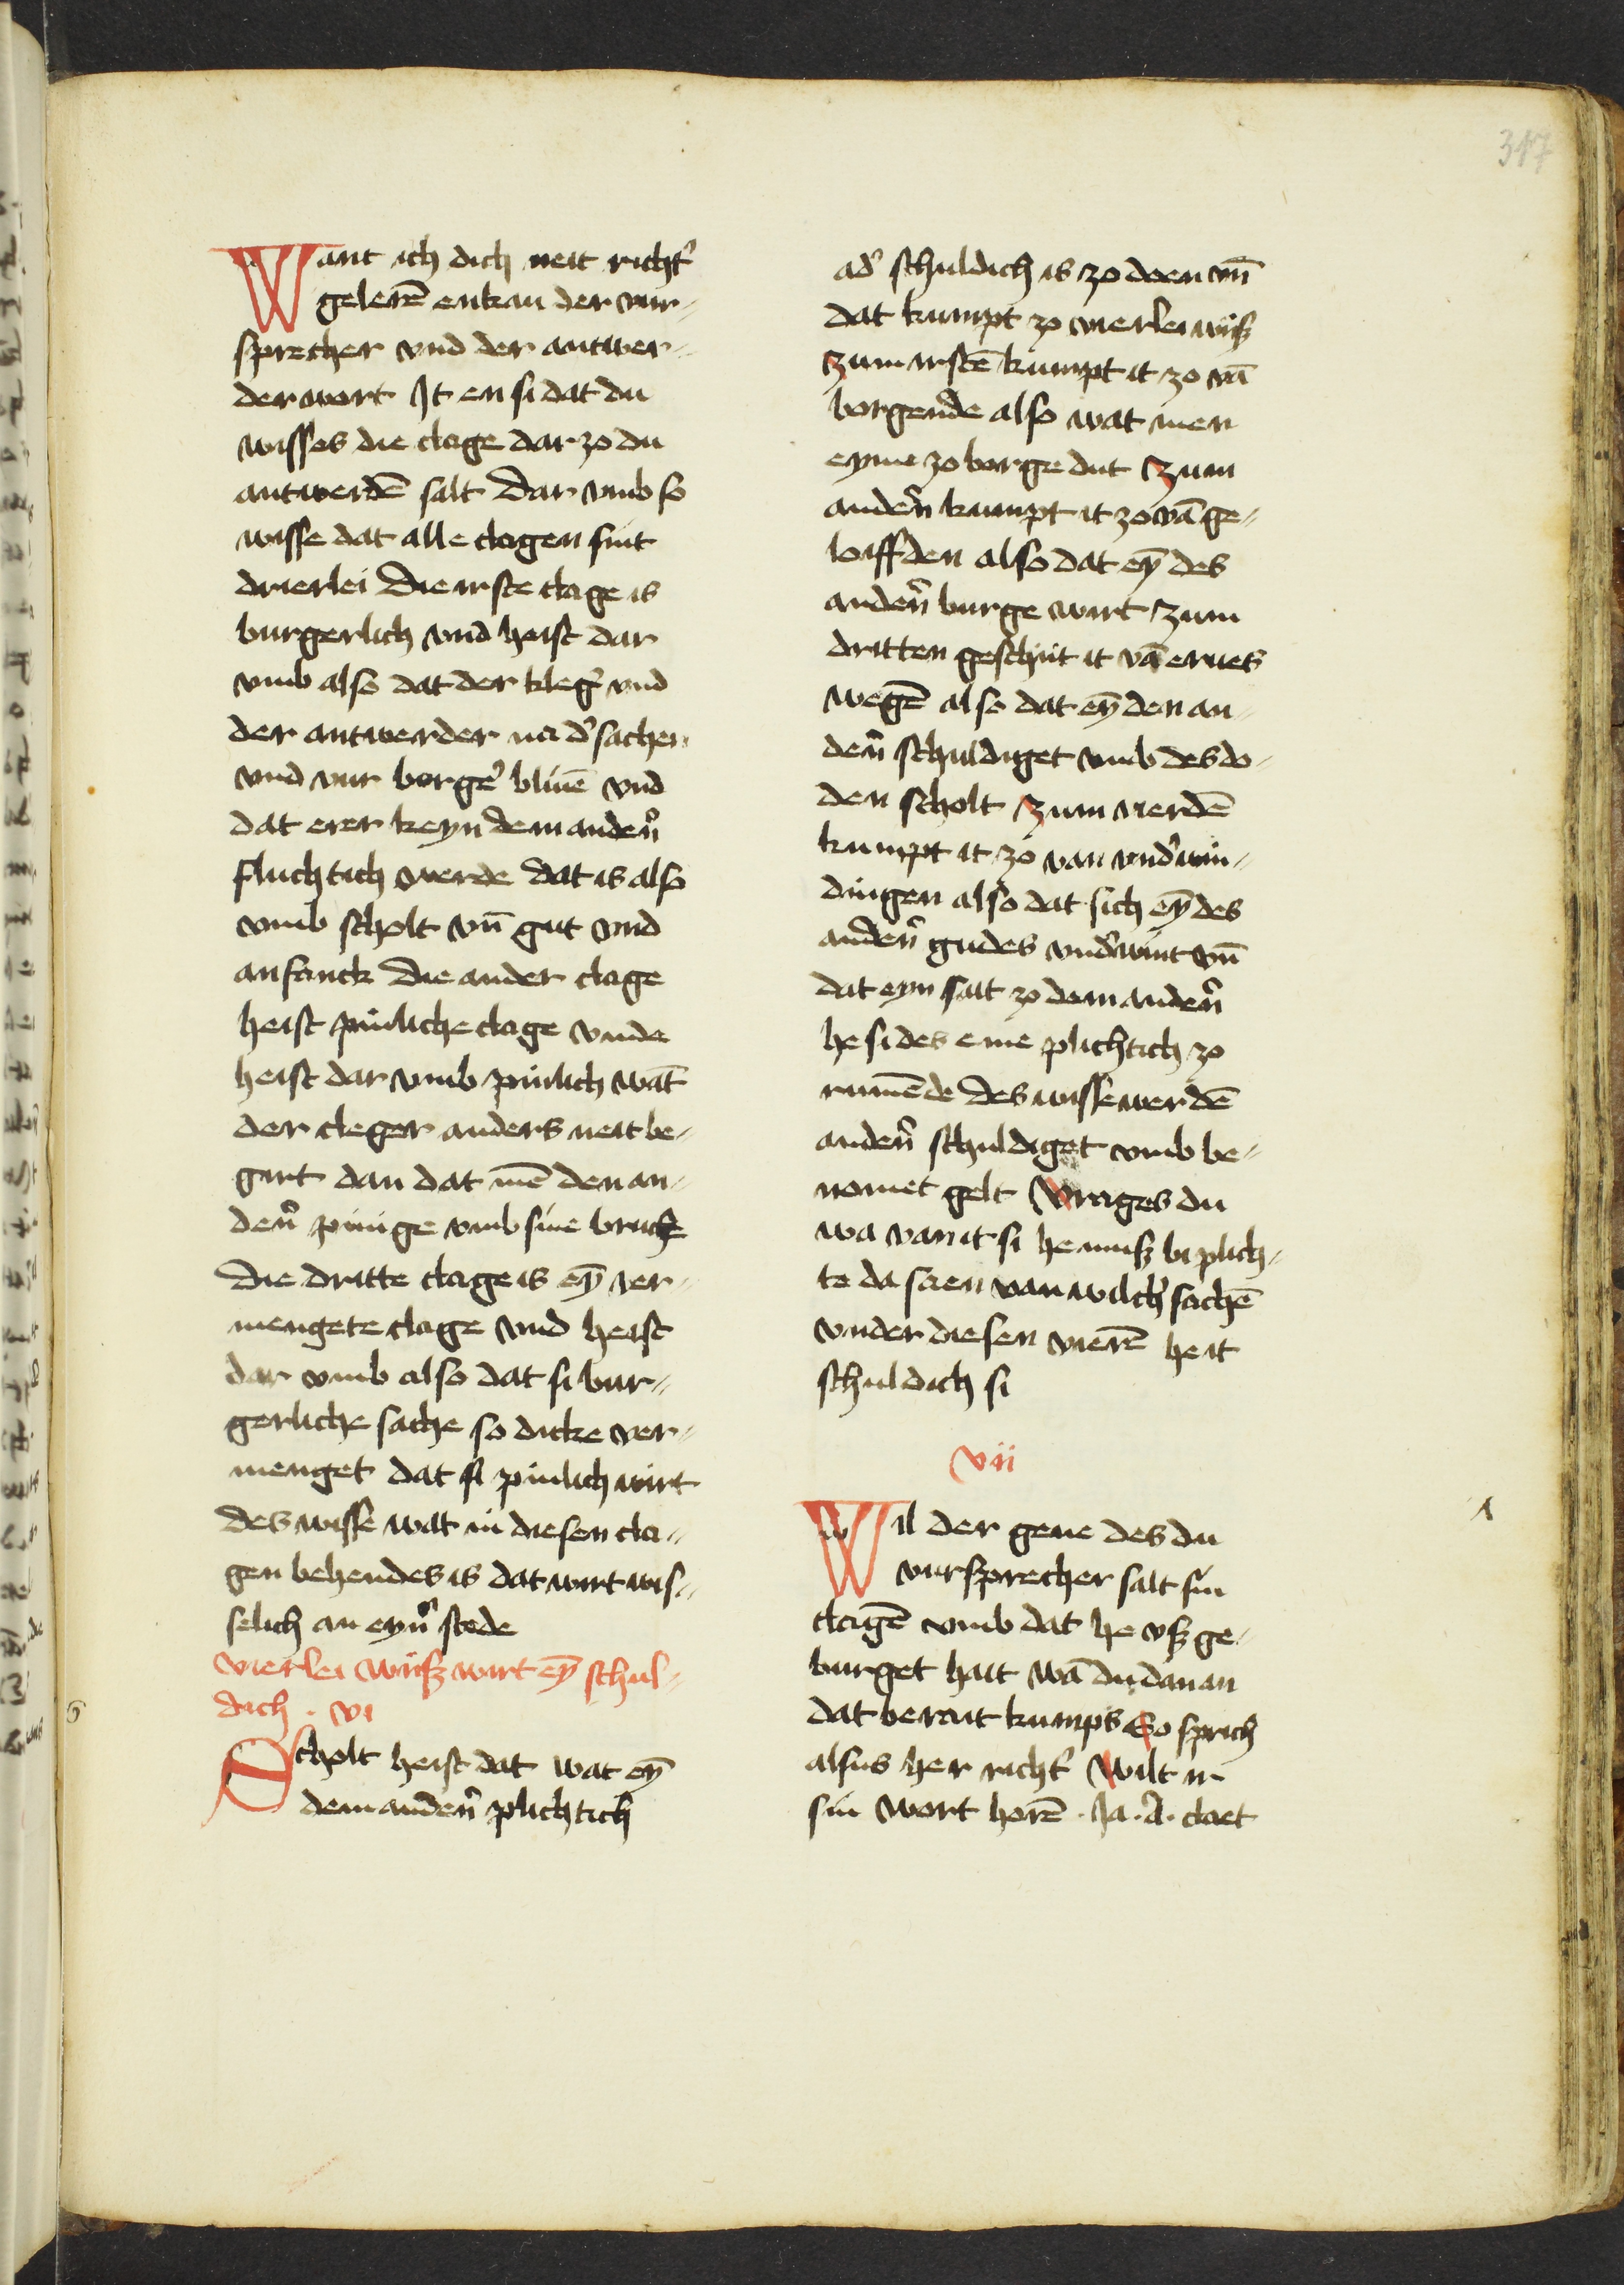 317
Want ich dich neit richt'
gelerē enkan der vur-
sprecher vnd der antwer-
der wort It en si dat du
wisses die clage dar zo du
antwerdē salt Dar vmb so
wisse dat alle clagen sint
drierlei Die irste clage is
burgerlich vnd heist dar
vmb also dat der kleg' vnd
der antwerder na d' sachen
vnd vur borge' bliuē vnd
dat erer keyn dem anden'
fluchtich werde dat is also
vmb scholt vn̄ gut vnd
anfanck Die ander clage
heist pinliche clage vnde
heist dar vmb pinlich wāt
der cleger anders neit be-
gert dan dat mē den an-
den' pinige vmb sine bruche
Die dritte clage is eȳ ver-
mengete clage vnd heist
dar vmb also dat si bur-
gerliche sache so dicke ver-
menget dat si pinlich wirt
des wisse wat in diesen cla-
gen behendes is dat wirt wis-
selich an eyn' stede
vierlei wijsz wirt eȳ schul-
dich . vi
6
Scholt heist dat wat eȳ
dem anden' plichtich
ad' schuldich is zo doen vn̄
dat kumpt zo vierlei wijsz
zum irstē kumpt it zo vā
borgende also wat men
eyme zo borge dut zum
anden' kumpt it zo vā ge-
loffden also dat eȳ des
anden' burge wirt zum
dritten geschüt it vā erues
wegē also dat eȳ den an-
den' schuldiget vmb des do-
den scholt zum vierdē
kumpt it zo van vnd'win-
dingen also dat sich eȳ des
anden' gudes vnd'wint vn̄
dat eyn sait zo dem anden'
he si des eme plichtich zo
rumēde des wisse wer dē
anden' schuldiget vmb be-
nomet gelt Vrages du
wa van it si he musz bi plich-
te da saen van wilch' sachē
vnder diesen vierē he it
schuldich si
vii
Wil der gene des du
vursprecher salt sin
clagē vmb dat he vsz ge-
burget hait wā du dan an
dat beruit kumps So sprich
alsus her richt' wilt ir
sin wort horē . Ja . A . claet